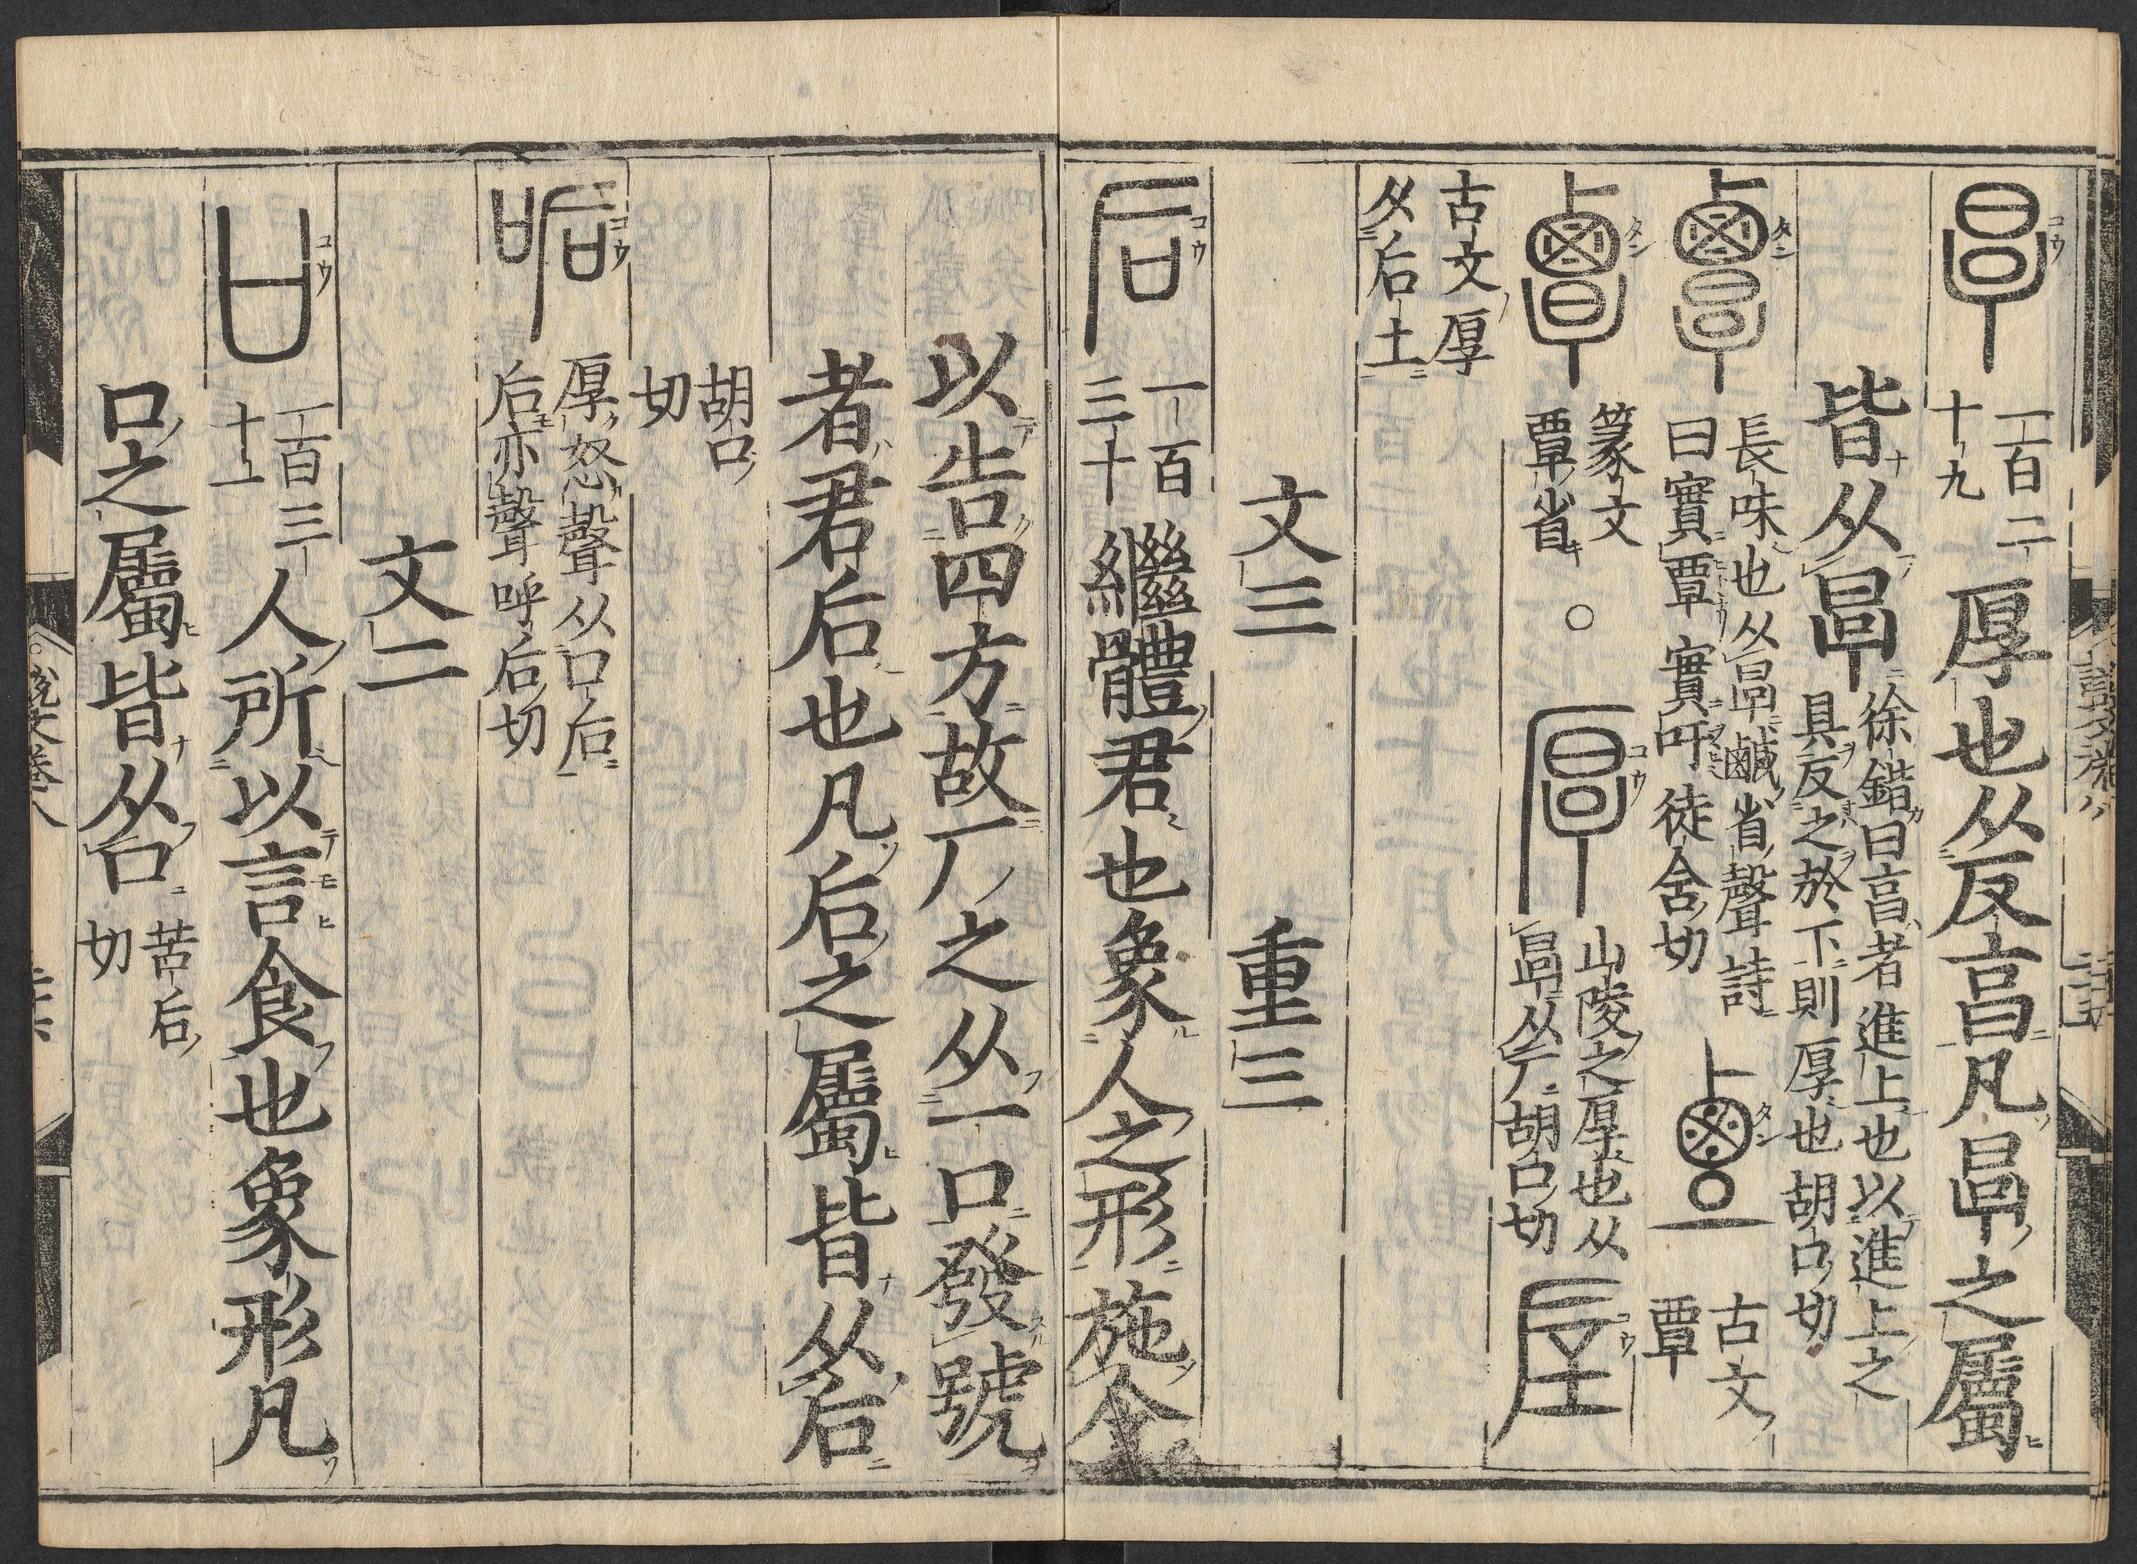 㫗 一百二十九 厚也从反㐭凡㫗之屬
皆从㫗 徐鍇曰㐭者進上也以進上之具反之於下則厚也胡口切
𪉷 長味也从㫗鹹省聲詩曰實覃實吁徒含切 古文覃
覃 篆文覃省 ○ 厚 山陵之厚也从㫗从厂胡口切 垕
古文厚从后土
文三 重三
后 一百三十 繼體君也象人之形施令
以告四方故厂之从一口發號
者君后也凡后之屬皆从后
胡口切
㖃 厚怒聲从口后后亦聲呼后切
文二
口 一百三十一 人所以言食也象形凡
口之屬皆从口 苦后切
説文卷八 二十五
説文卷八 二十六